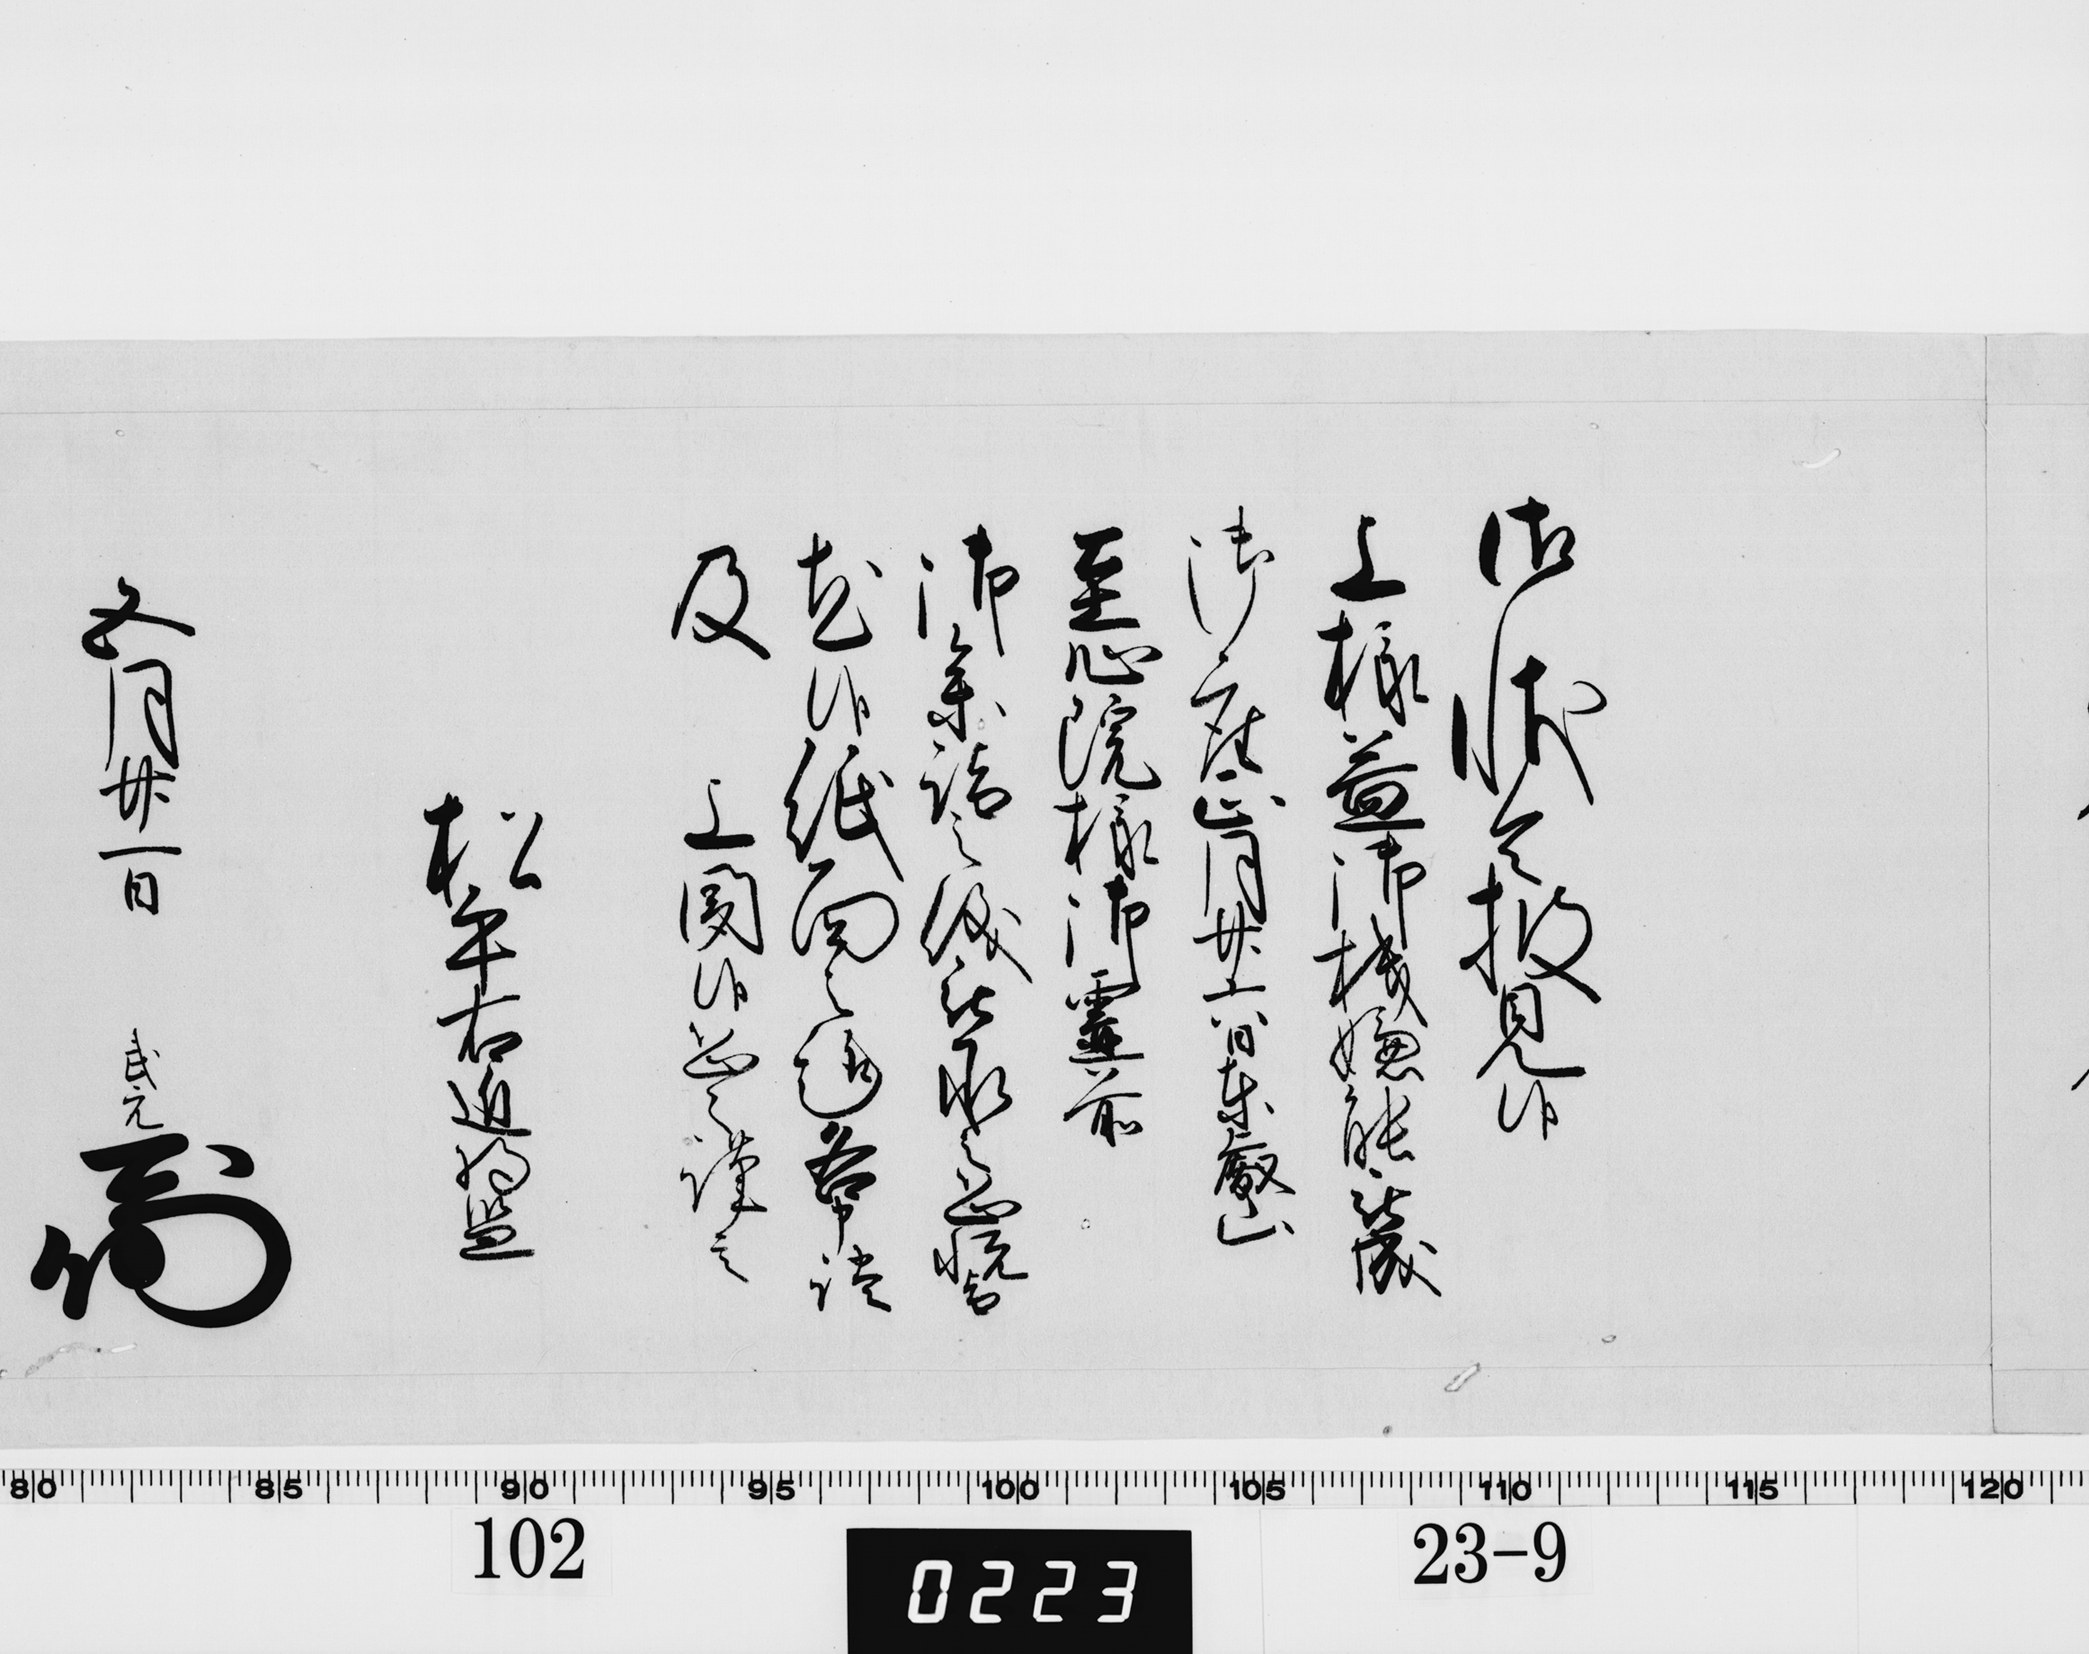 御状令披見候
上様益御機嫌能被成
御座正月廿六日東叡山
至心院様御霊前
御参詣之儀被承之恐悦旨
尤候紙面之趣各申談
及　上聞候恐々謹言
松平右近将監
五月廿一日　武元
80 85 90 95 100 105 110 115 120
102 0223 23-9